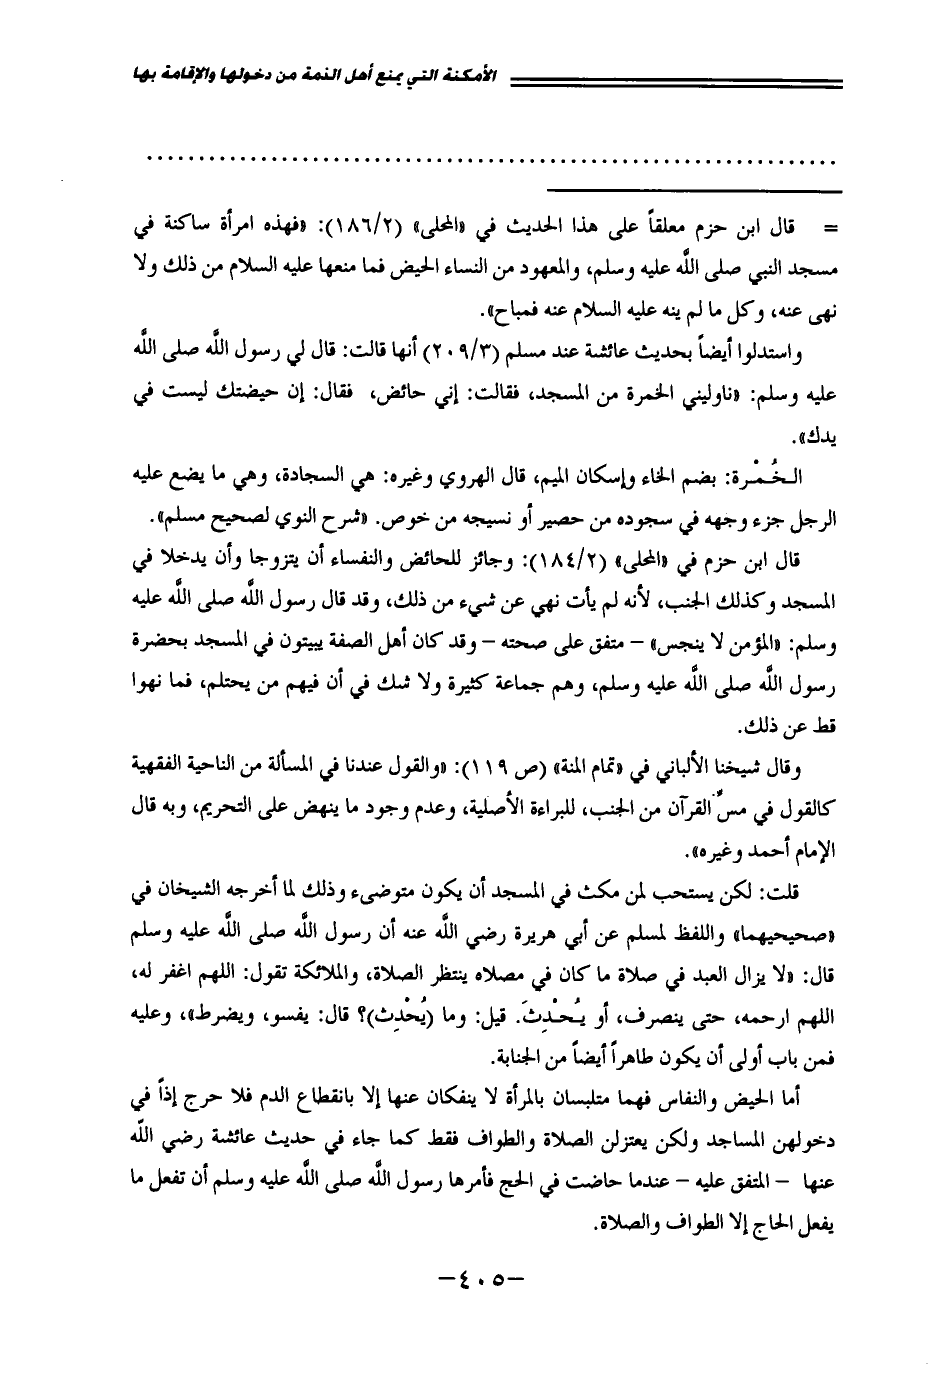 الأمكنة التي يمنع أهل الذمة من دخولها والإقامة بها
= قال ابن حزم معلقاً على هذا الحديث في «المحلى» (١٨٦/٢): «فهذه امرأة ساكنة في
مسجد النبي صلى اللَّه عليه وسلم، والمعهود من النساء الحيض فما منعها عليه السلام من ذلك ولا
نهى عنه، وكل ما لم ينه عليه السلام عنه فمباح».
واستدلوا أيضاً بحديث عائشة عند مسلم (٢٠٩/٣) أنها قالت: قال لي رسول اللَّه صلى اللَّه
عليه وسلم: «ناوليني الخمرة من المسجد، فقالت: إني حائض، فقال: إن حيضتك ليست في
يدك».
الـخُـمْـرة: بضم الخاء وإسكان الميم، قال الهروي وغيره: هي السجادة، وهي ما يضع عليه
الرجل جزء وجهه في سجوده من حصير أو نسيجه من خوص. «شرح النوي لصحيح مسلم».
قال ابن حزم في «المحلى» (١٨٤/٢): وجائز للحائض والنفساء أن يتزوجا وأن يدخلا في
المسجد وكذلك الجنب، لأنه لم يأت نهي عن شيء من ذلك، وقد قال رسول اللَّه صلى اللَّه عليه
وسلم: «المؤمن لا ينجس» – متفق على صحته – وقد كان أهل الصفة يبيتون في المسجد بحضرة
رسول اللَّه صلى اللَّه عليه وسلم، وهم جماعة كثيرة ولا شك في أن فيهم من يحتلم، فما نهوا
قط عن ذلك.
وقال شيخنا الألباني في «تمام المنة» (ص ١١٩): «والقول عندنا في المسألة من الناحية الفقهية
كالقول في مسِّ القرآن من الجنب، للبراءة الأصلية، وعدم وجود ما ينهض على التحريم، وبه قال
الإمام أحمد وغيره».
قلت: لكن يستحب لمن مكث في المسجد أن يكون متوضىء وذلك لما أخرجه الشيخان في
«صحيحيهما» واللفظ لمسلم عن أبي هريرة رضي اللَّه عنه أن رسول اللَّه صلى اللَّه عليه وسلم
قال: «لا يزال العبد في صلاة ما كان في مصلاه ينتظر الصلاة، والملائكة تقول: اللهم اغفر له،
اللهم ارحمه، حتى ينصرف، أو يُـحْـدِثَ. قيل: وما (يُحْدِث)؟ قال: يفسو، ويضرط»، وعليه
فمن باب أولى أن يكون طاهراً أيضاً من الجنابة.
أما الحيض والنفاس فهما متلبسان بالمرأة لا ينفكان عنها إلا بانقطاع الدم فلا حرج إذاً في
دخولهن المساجد ولكن يعتزلن الصلاة والطواف فقط كما جاء في حديث عائشة رضي اللَّه
عنها – المتفق عليه – عندما حاضت في الحج فأمرها رسول اللَّه صلى اللَّه عليه وسلم أن تفعل ما
يفعل الحاج إلا الطواف والصلاة.
–٤٠٥–